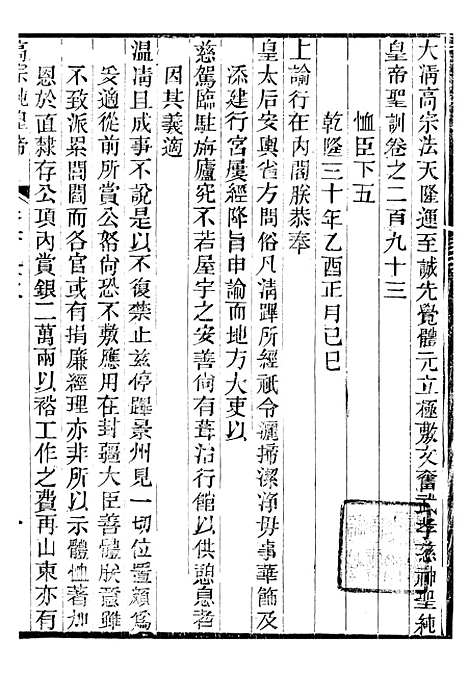 大清高宗法天隆運至誠先覺體元立極敷文奮武孝慈神聖純
皇帝聖訓卷之二百九十三
恤臣下五
乾隆三十年乙酉正月己巳
上諭行在內閣朕恭奉
皇太后安輿省方問俗凡清蹕所經祇令灑掃潔淨毋事華飾及
添建行宮屢經降旨申諭而地方大吏以
慈駕臨駐旃廬究不若屋宇之安善尙有葺治行館以供憩息者
因其義適
溫凊且成事不說是以不復禁止兹停蹕景州見一切位置頗爲
妥適從前所賞公帑尙恐不敷應用在封疆大臣善體朕意雖
不致派累閭閻而各官或有捐廉經理亦非所以示體恤著加
恩於直隸存公項內賞銀二萬兩以裕工作之費再山東亦有
高宗純皇帝